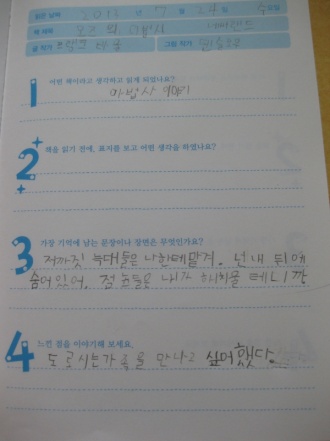 읽은 날짜 2012 년 7 월 24 일 수 요일
책 제목 오즈의 마법사
글 작가 프랭크 바움 그림 작가
1 어떤 책이라고 생각하고 읽게 되었나요?
마법사 이야기
2 책을 읽기 전에, 표지를 보고 어떤 생각을 하였나요?
3 가장 기억에 남는 문장이나 장면은 무엇인가요?
저까짓 늑대들은 나한테 맡겨. 넌 내 뒤에
숨어있어. 저 놈들은 내가 해치울 테니깐
4 느낀 점을 이야기해 보세요.
도로시는 가족을 만나고 싶어했다.